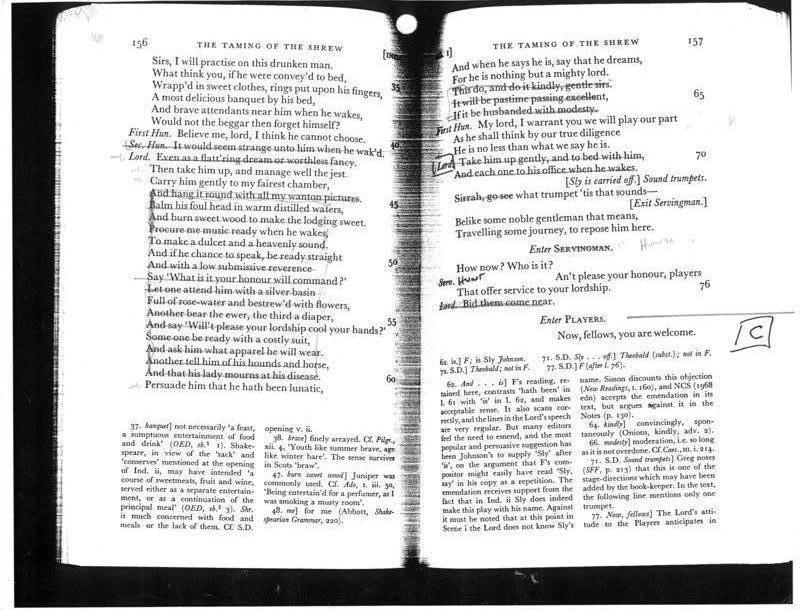 156 THE TAMING OF THE SHREW [IND.
Sirs, I will practise on this drunken man.
What think you, if he were convey'd to bed,
Wrapp'd in sweet clothes, rings put upon his fingers, 35
A most delicious banquet by his bed,
And brave attendants near him when he wakes,
Would not the beggar then forget himself?
First Hun. Believe me, lord, I think he cannot choose.
Sec. Hun. It would seem strange unto him when he wak'd. 40
Lord. Even as a flatt'ring dream or worthless fancy.
Then take him up, and manage well the jest.
Carry him gently to my fairest chamber,
And hang it round with all my wanton pictures.
Balm his foul head in warm distilled waters, 45
And burn sweet wood to make the lodging sweet.
Procure me music ready when he wakes,
To make a dulcet and a heavenly sound.
And if he chance to speak, be ready straight
And with a low submissive reverence 50
Say 'What is it your honour will command?'
Let one attend him with a silver basin
Full of rose-water and bestrew'd with flowers,
Another bear the ewer, the third a diaper,
And say 'Will't please your lordship cool your hands?' 55
Some one be ready with a costly suit,
And ask him what apparel he will wear.
Another tell him of his hounds and horse,
And that his lady mourns at his disease. 60
Persuade him that he hath been lunatic,
37. banquet] not necessarily 'a feast,
a sumptuous entertainment of food
and drink' (OED, sb.¹ 1). Shake-
speare, in view of the 'sack' and
'conserves' mentioned at the opening
of Ind. ii, may have intended 'a
course of sweetmeats, fruit and wine,
served either as a separate entertain-
ment, or as a continuation of the
principal meal' (OED, sb.¹ 3). Shr.
is much concerned with food and
meals or the lack of them. Cf. S.D.
opening v. ii.
38. brave] finely arrayed. Cf. Pilgr.,
xii. 4, 'Youth like summer brave, age
like winter bare'. The sense survives
in Scots 'braw'.
47. burn sweet wood] Juniper was
commonly used. Cf. Ado, 1. iii. 50,
'Being entertain'd for a perfumer, as I
was smoking a musty room'.
48. me] for me (Abbott, Shake-
spearian Grammar, 220).
I] THE TAMING OF THE SHREW 157
And when he says he is, say that he dreams,
For he is nothing but a mighty lord.
This do, and do it kindly, gentle sirs.
It will be pastime passing excellent, 65
If it be husbanded with modesty.
First Hun. My lord, I warrant you we will play our part
As he shall think by our true diligence
He is no less than what we say he is.
Lord. Take him up gently, and to bed with him, 70
And each one to his office when he wakes.
[Sly is carried off.] Sound trumpets.
Sirrah, go see what trumpet 'tis that sounds—
[Exit Servingman.]
Belike some noble gentleman that means,
Travelling some journey, to repose him here.
Enter SERVINGMAN.
How now? Who is it?
Serv. HUNT An't please your honour, players
That offer service to your lordship. 76
Lord. Bid them come near.
Enter PLAYERS.
Now, fellows, you are welcome.
C
62. is,] F; is Sly Johnson. 71. S.D. Sly ... off.] Theobald (subst.); not in F.
72. S.D.] Theobald; not in F. 77. S.D.] F (after l. 76).
62. And . . . is] F's reading, re-
tained here, contrasts 'hath been' in
l. 61 with 'is' in l. 62, and makes
acceptable sense. It also scans cor-
rectly, and the lines in the Lord's speech
are very regular. But many editors
feel the need to emend, and the most
popular and persuasive suggestion has
been Johnson's to supply 'Sly' after
'is', on the argument that F's com-
positor might easily have read 'Sly,
say' in his copy as a repetition. The
emendation receives support from the
fact that in Ind. ii Sly does indeed
make this play with his name. Against
it must be noted that at this point in
Scene i the Lord does not know Sly's
name. Sisson discounts this objection
(New Readings, 1. 160), and NCS (1968
edn) accepts the emendation in its
text, but argues against it in the
Notes (p. 130).
64. kindly] convincingly, spon-
taneously (Onions, kindly, adv. 2).
66. modesty] moderation, i.e. so long
as it is not overdone. Cf. Caes., III. i. 214.
71. S.D. Sound trumpets] Greg notes
(SFF, p. 213) that this is one of the
stage-directions which may have been
added by the book-keeper. In the text,
the following line mentions only one
trumpet.
77. Now, fellows] The Lord's atti-
tude to the Players anticipates in